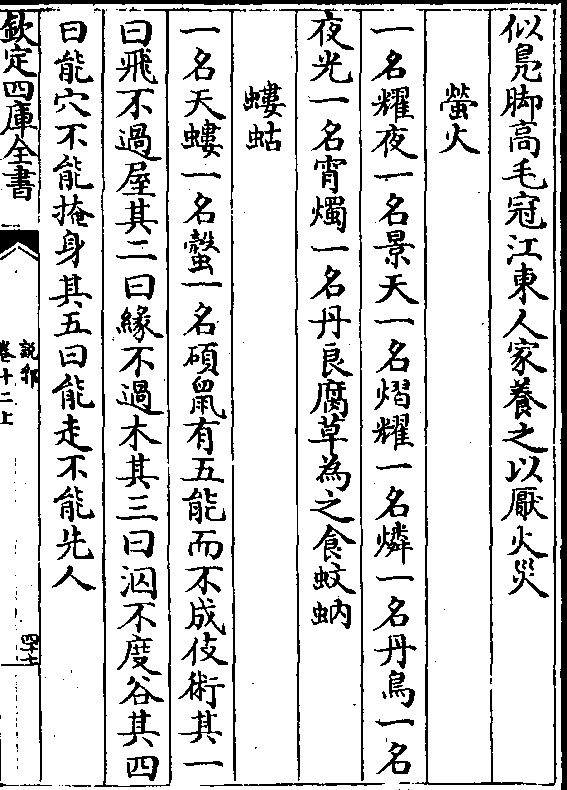 似鳧脚高毛冠江東人家養之以厭火災
螢火
一名耀夜一名景天一名熠耀一名燐一名丹鳥一名
夜光一名宵燭一名丹良腐草為之食蚊蚋
螻蛄
一名天螻一名螜一名碩鼠有五能而不成伎術其一
曰飛不過屋其二曰緣不過木其三曰泅不度谷其四
曰能穴不能掩身其五曰能走不能先人
欽定四庫全書
說郛
卷十二上
四十七